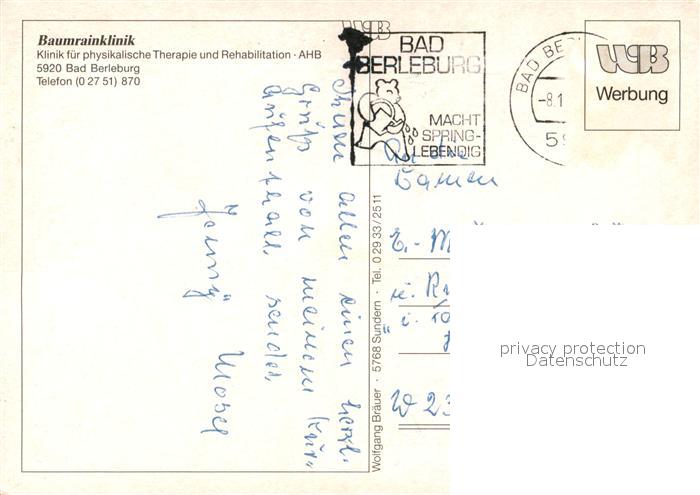 Baumrainklinik
Klinik für physikalische Therapie und Rehabilitation · AHB
5920 Bad Berleburg
Telefon (0 27 51) 870
WB
BAD
BERLEBURG
MACHT
SPRING-
LEBENDIG
BAD BE
-8.1
59
WB
Werbung
Ihnen allen einen herzl.
Gruß von meinem Kur-
aufenthalt sendet
Jenny Mosel
An die
Damen
E.-M
u. R
W 23
Wolfgang Bräuer · 5768 Sundern · Tel. 0 29 33 / 25 11
privacy protection
Datenschutz